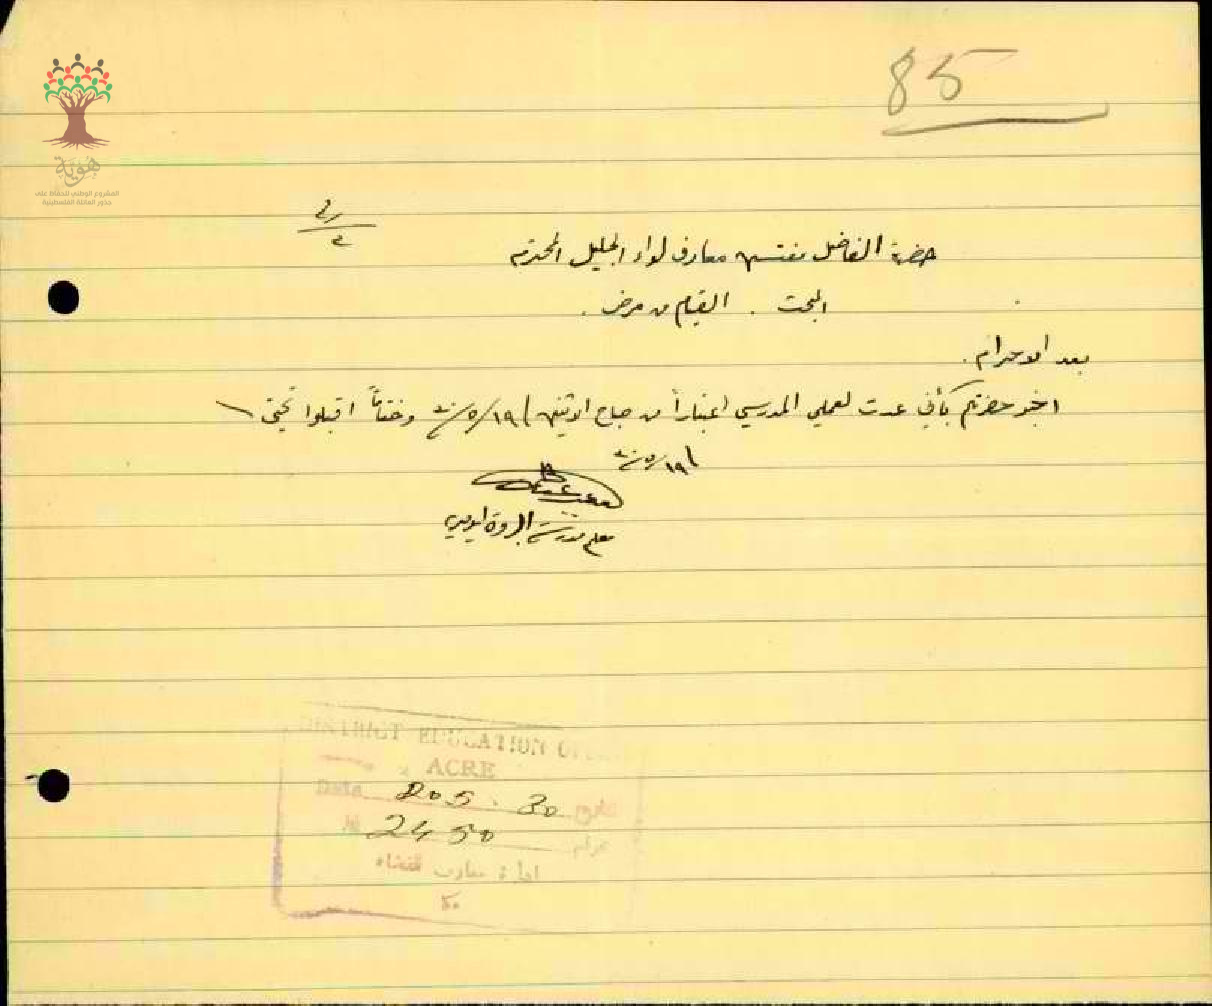 85
هوية
المشروع الوطني للحفاظ على
جذور العائلة الفلسطينية
حضرة الفاضل مفتش معارف لواء الجليل المحترم
البحث . القيام من مرض .
بعد الاحترام .
اخبر حضرتكم بأني عدت لعملي المدرسي اعتباراً من صباح الاثنين ١٩/٥/ وختاماً اقبلوا تحيتي
معلم مدرسة البروة
DISTRICT EDUCATION
ACRE
Date 20 5 . 30 تاريخ
№ 2450
ادارة معارف القضاء